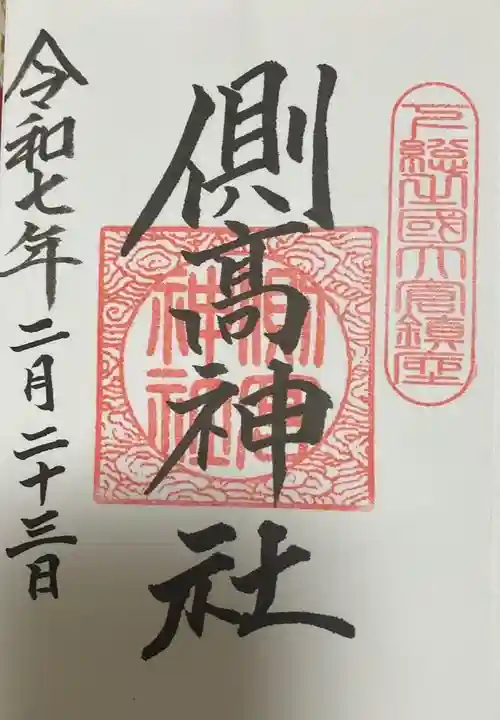 下総之國大倉鎮座
側高神社
側高神社
令和七年二月二十三日